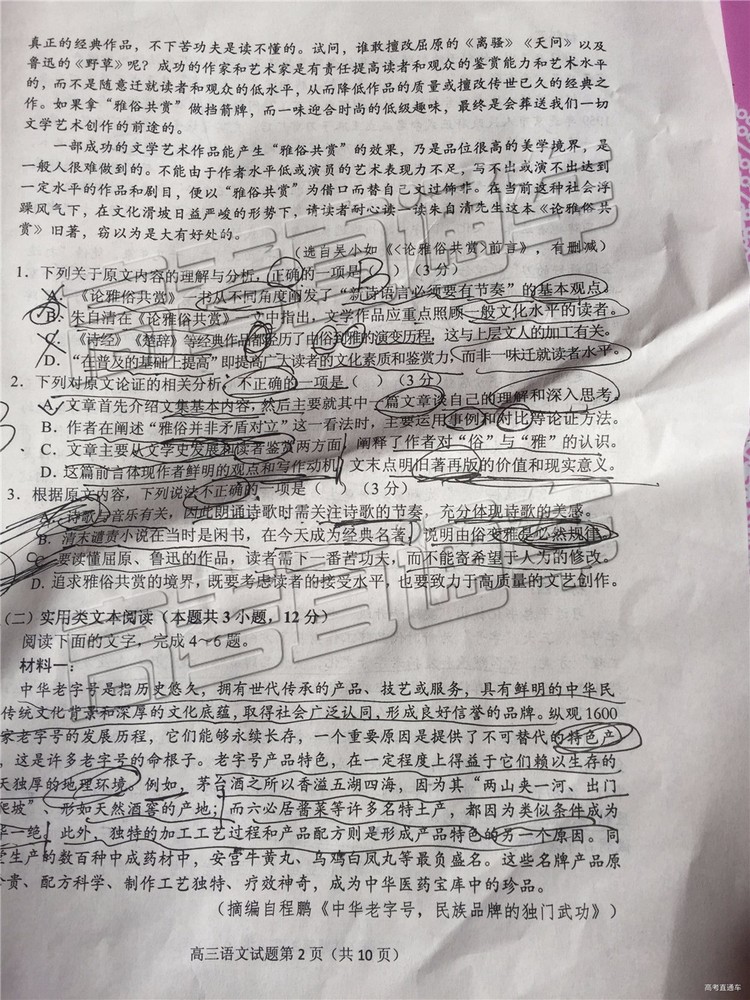 真正的经典作品，不下苦功夫是读不懂的。试问，谁敢擅改屈原的《离骚》《天问》以及
鲁迅的《野草》呢？成功的作家和艺术家是有责任提高读者和观众的鉴赏能力和艺术水平
的，而不是随意迁就读者和观众的低水平，从而降低作品的质量或擅改传世已久的经典之
作。如果拿“雅俗共赏”做挡箭牌，而一味迎合时尚的低级趣味，最终是会葬送我们一切
文学艺术创作的前途的。
一部成功的文学艺术作品能产生“雅俗共赏”的效果，乃是品位很高的美学境界，是
一般人很难做到的。不能由于作者水平低或演员的艺术表现力不足，写不出或演不出达到
一定水平的作品和剧目，便以“雅俗共赏”为借口而替自己文过饰非。在当前这种社会浮
躁风气下，在文化滑坡日益严峻的形势下，请读者耐心读一读朱自清先生这本《论雅俗共
赏》旧著，窃以为是大有好处的。
（选自吴小如《<论雅俗共赏>前言》，有删减）
1．下列关于原文内容的理解与分析，正确的一项是（ ）（3 分）
A．《论雅俗共赏》一书从不同角度阐发了“新诗语言必须要有节奏”的基本观点。
B．朱自清在《论雅俗共赏》一文中指出，文学作品应重点照顾一般文化水平的读者。
C．《诗经》《楚辞》等经典作品都经历了由俗到雅的演变历程，这与上层文人的加工有关。
D．“在普及的基础上提高”即提高广大读者的文化素质和鉴赏力，而非一味迁就读者水平。
2．下列对原文论证的相关分析，不正确的一项是（ ）（3 分）
A．文章首先介绍文集基本内容，然后主要就其中一篇文章谈自己的理解和深入思考。
B．作者在阐述“雅俗并非矛盾对立”这一看法时，主要运用事例和对比等论证方法。
C．文章主要从文学史发展和读者鉴赏两方面，阐释了作者对“俗”与“雅”的认识。
D．这篇前言体现作者鲜明的观点和写作动机，文末点明旧著再版的价值和现实意义。
3．根据原文内容，下列说法不正确的一项是（ ）（3 分）
A．诗歌与音乐有关，因此朗诵诗歌时需关注诗歌的节奏，充分体现诗歌的美感。
B．清末谴责小说在当时是闲书，在今天成为经典名著，说明由俗变雅是必然规律。
C．要读懂屈原、鲁迅的作品，读者需下一番苦功夫，而不能寄希望于人为的修改。
D．追求雅俗共赏的境界，既要考虑读者的接受水平，也要致力于高质量的文艺创作。
（二）实用类文本阅读（本题共 3 小题，12 分）
阅读下面的文字，完成 4～6 题。
材料一：
中华老字号是指历史悠久，拥有世代传承的产品、技艺或服务，具有鲜明的中华民
传统文化背景和深厚的文化底蕴，取得社会广泛认同，形成良好信誉的品牌。纵观 1600
家老字号的发展历程，它们能够永续长存，一个重要原因是提供了不可替代的特色产
，这是许多老字号的命根子。老字号产品特色，在一定程度上得益于它们赖以生存的
天独厚的地理环境。例如，茅台酒之所以香溢五湖四海，因为其“两山夹一河、出门
爬坡”、形如天然酒窖的产地；而六必居酱菜等许多名特土产，都因为类似条件成为
一绝。此外，独特的加工工艺过程和产品配方则是形成产品特色的另一个原因。同
堂生产的数百种中成药材中，安宫牛黄丸、乌鸡白凤丸等最负盛名。这些名牌产品原
珍贵、配方科学、制作工艺独特、疗效神奇，成为中华医药宝库中的珍品。
（摘编自程鹏《中华老字号，民族品牌的独门武功》）
高三语文试题第 2 页（共 10 页）
高考直通车
高考直通车
高考直通车